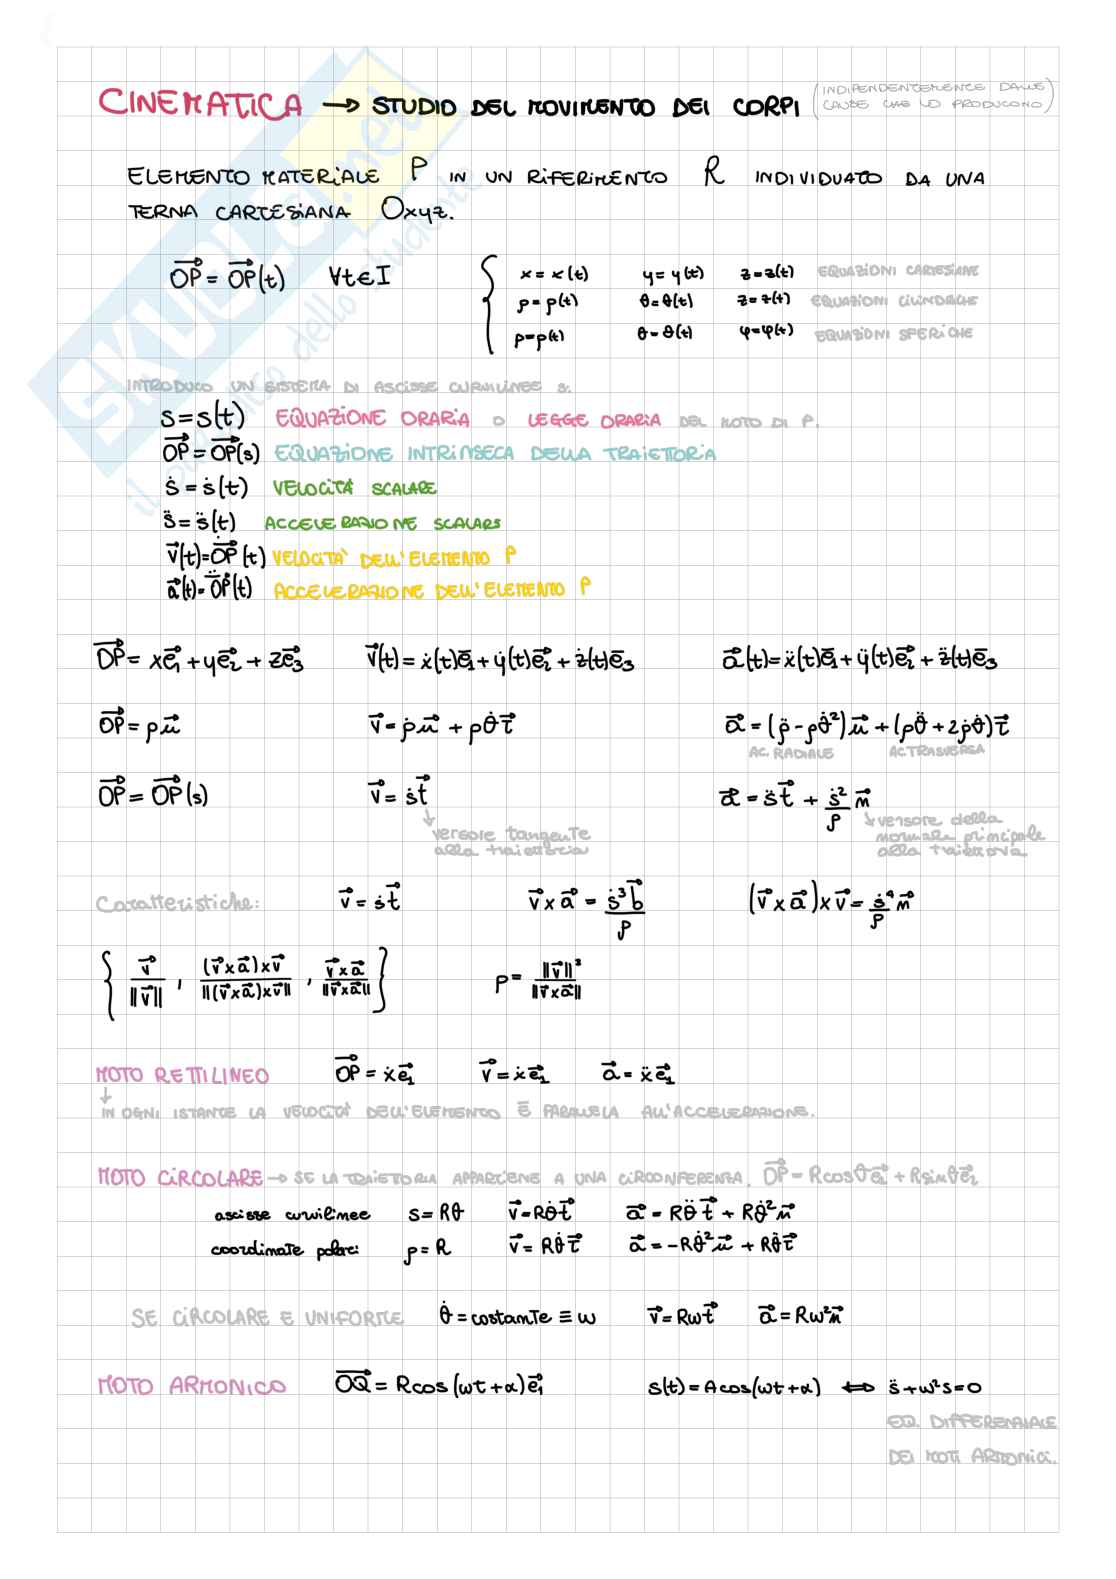 CINEMATICA → STUDIO DEL MOVIMENTO DEI CORPI (INDIPENDENTEMENTE DALLE
CAUSE CHE LO PRODUCONO)
ELEMENTO MATERIALE P IN UN RIFERIMENTO R INDIVIDUATO DA UNA
TERNA CARTESIANA Oxyz.
$\vec{OP} = \vec{OP}(t)$ ∀t∈I
{ x = x(t) y = y(t) z = z(t) EQUAZIONI CARTESIANE
ρ = ρ(t) θ = θ(t) z = z(t) EQUAZIONI CILINDRICHE
ρ = ρ(t) θ = θ(t) φ = φ(t) EQUAZIONI SFERICHE
INTRODUCO UN SISTEMA DI ASCISSE CURVILINEE s.
s = s(t) EQUAZIONE ORARIA O LEGGE ORARIA DEL MOTO DI P.
$\vec{OP} = \vec{OP}(s)$ EQUAZIONE INTRINSECA DELLA TRAIETTORIA
ṡ = ṡ(t) VELOCITÀ SCALARE
s̈ = s̈(t) ACCELERAZIONE SCALARE
$\vec{v}(t) = \dot{\vec{OP}}(t)$ VELOCITA' DELL'ELEMENTO P
$\vec{a}(t) = \ddot{\vec{OP}}(t)$ ACCELERAZIONE DELL'ELEMENTO P
$\vec{OP} = x\vec{e_1} + y\vec{e_2} + z\vec{e_3}$ $\vec{v}(t) = \dot{x}(t)\vec{e_1} + \dot{y}(t)\vec{e_2} + \dot{z}(t)\vec{e_3}$ $\vec{a}(t) = \ddot{x}(t)\vec{e_1} + \ddot{y}(t)\vec{e_2} + \ddot{z}(t)\vec{e_3}$
$\vec{OP} = ρ\vec{u}$ $\vec{v} = \dot{ρ}\vec{u} + ρ\dot{θ}\vec{τ}$ $\vec{a} = (\ddot{ρ} - ρ\dot{θ}^2)\vec{u} + (ρ\ddot{θ} + 2\dot{ρ}\dot{θ})\vec{τ}$
AC. RADIALE AC. TRASVERSA
$\vec{OP} = \vec{OP}(s)$ $\vec{v} = \dot{s}\vec{t}$ $\vec{a} = \ddot{s}\vec{t} + \frac{\dot{s}^2}{ρ}\vec{n}$
↓ versore tangente
alla traiettoria
↳ versore della
normale principale
alla traiettoria
Caratteristiche: $\vec{v} = \dot{s}\vec{t}$ $\vec{v} × \vec{a} = \frac{\dot{s}^3\vec{b}}{ρ}$ $(\vec{v} × \vec{a}) × \vec{v} = \frac{\dot{s}^4}{ρ}\vec{n}$
$\{ \frac{\vec{v}}{||\vec{v}||}, \frac{(\vec{v}×\vec{a})×\vec{v}}{||(\vec{v}×\vec{a})×\vec{v}||}, \frac{\vec{v}×\vec{a}}{||\vec{v}×\vec{a}||} \}$ $ρ = \frac{||\vec{v}||^3}{||\vec{v}×\vec{a}||}$
MOTO RETTILINEO $\vec{OP} = \dot{x}\vec{e_1}$ $\vec{v} = \dot{x}\vec{e_1}$ $\vec{a} = \ddot{x}\vec{e_1}$
↓
IN OGNI ISTANTE LA VELOCITA' DELL'ELEMENTO È PARALLELA ALL'ACCELERAZIONE.
MOTO CIRCOLARE → SE LA TRAIETTORIA APPARTIENE A UNA CIRCONFERENZA. $\vec{OP} = Rcosθ\vec{e_1} + Rsinθ\vec{e_2}$
ascisse curvilinee s = Rθ $\vec{v} = R\dot{θ}\vec{t}$ $\vec{a} = R\ddot{θ}\vec{t} + R\dot{θ}^2\vec{n}$
coordinate polari: ρ = R $\vec{v} = R\dot{θ}\vec{τ}$ $\vec{a} = -R\dot{θ}^2\vec{u} + R\ddot{θ}\vec{τ}$
SE CIRCOLARE E UNIFORME $\dot{θ}$ = costante ≡ ω $\vec{v} = Rω\vec{t}$ $\vec{a} = Rω^2\vec{n}$
MOTO ARMONICO $\vec{OQ} = Rcos(ωt + α)\vec{e_1}$ s(t) = Acos(ωt + α) ⟺ s̈ + ω²s = 0
EQ. DIFFERENZIALE
DEI MOTI ARMONICI.
SKUOLA.net
il paradiso dello studente